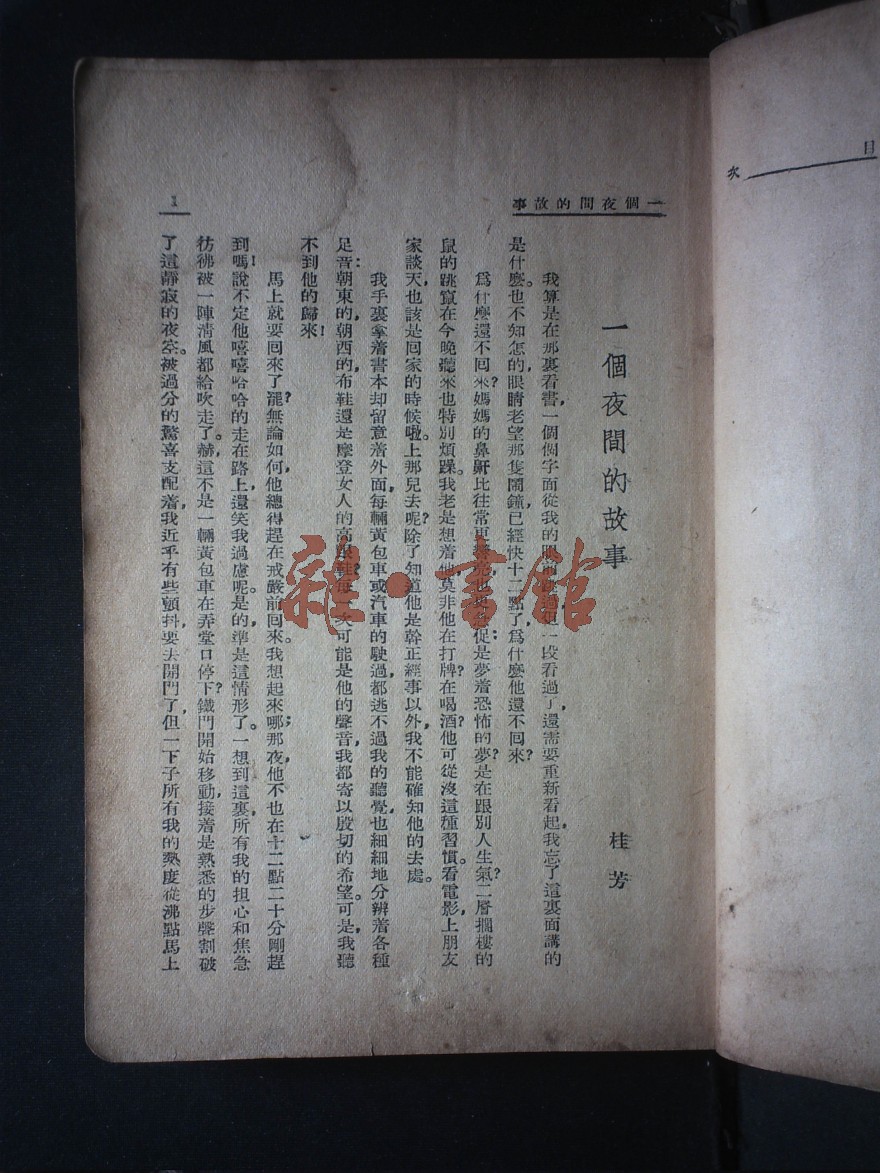 目次
一個夜間的故事
1
一個夜間的故事
桂芳
我算是在那裏看書，一個個字面從我的眼前跳過，一段看過了，還需要重新看起，我忘了這裏面講的
是什麼。也不知怎的，眼睛老望那隻鬧鐘，已經快十二點了，爲什麼他還不回來？
爲什麼還不回來？媽媽的鼻鼾比往常更響亮，也更急促：是夢着恐怖的夢？是在跟別人生氣？二層擱樓的
鼠的跳竄在今晚聽來也特別煩躁。我老是想着他，莫非他在打牌？在喝酒？他可從沒這種習慣。看電影，上朋友
家談天，也該是回家的時候啦。上那兒去呢？除了知道他是幹正經事以外，我不能確知他的去處。
我手裏拿着書本却留意着外面，每輛黃包車或汽車的駛過，都逃不過我的聽覺，也細細地分辨着各種
足音：朝東的，朝西的，布鞋還是摩登女人的高跟鞋？每一次可能是他的聲音，我都寄以殷切的希望。可是，我聽
不到他的歸來！
馬上就要回來了罷？無論如何，他總得趕在戒嚴前回來。我想起來哪，那夜，他不也在十二點二十分剛趕
到嗎！說不定他嘻嘻哈哈的走在路上，還笑我過慮呢。是的，準是這情形了。一想到這裏，所有我的担心和焦急
彷彿被一陣清風都給吹走了。赫，這不是一輛黃包車在弄堂口停下？鐵門開始移動，接着是熟悉的步聲割破
了這靜寂的夜空。被過分的驚喜支配着，我近乎有些顫抖，要去開門了，但一下子所有我的熱度從沸點馬上
雜·書館